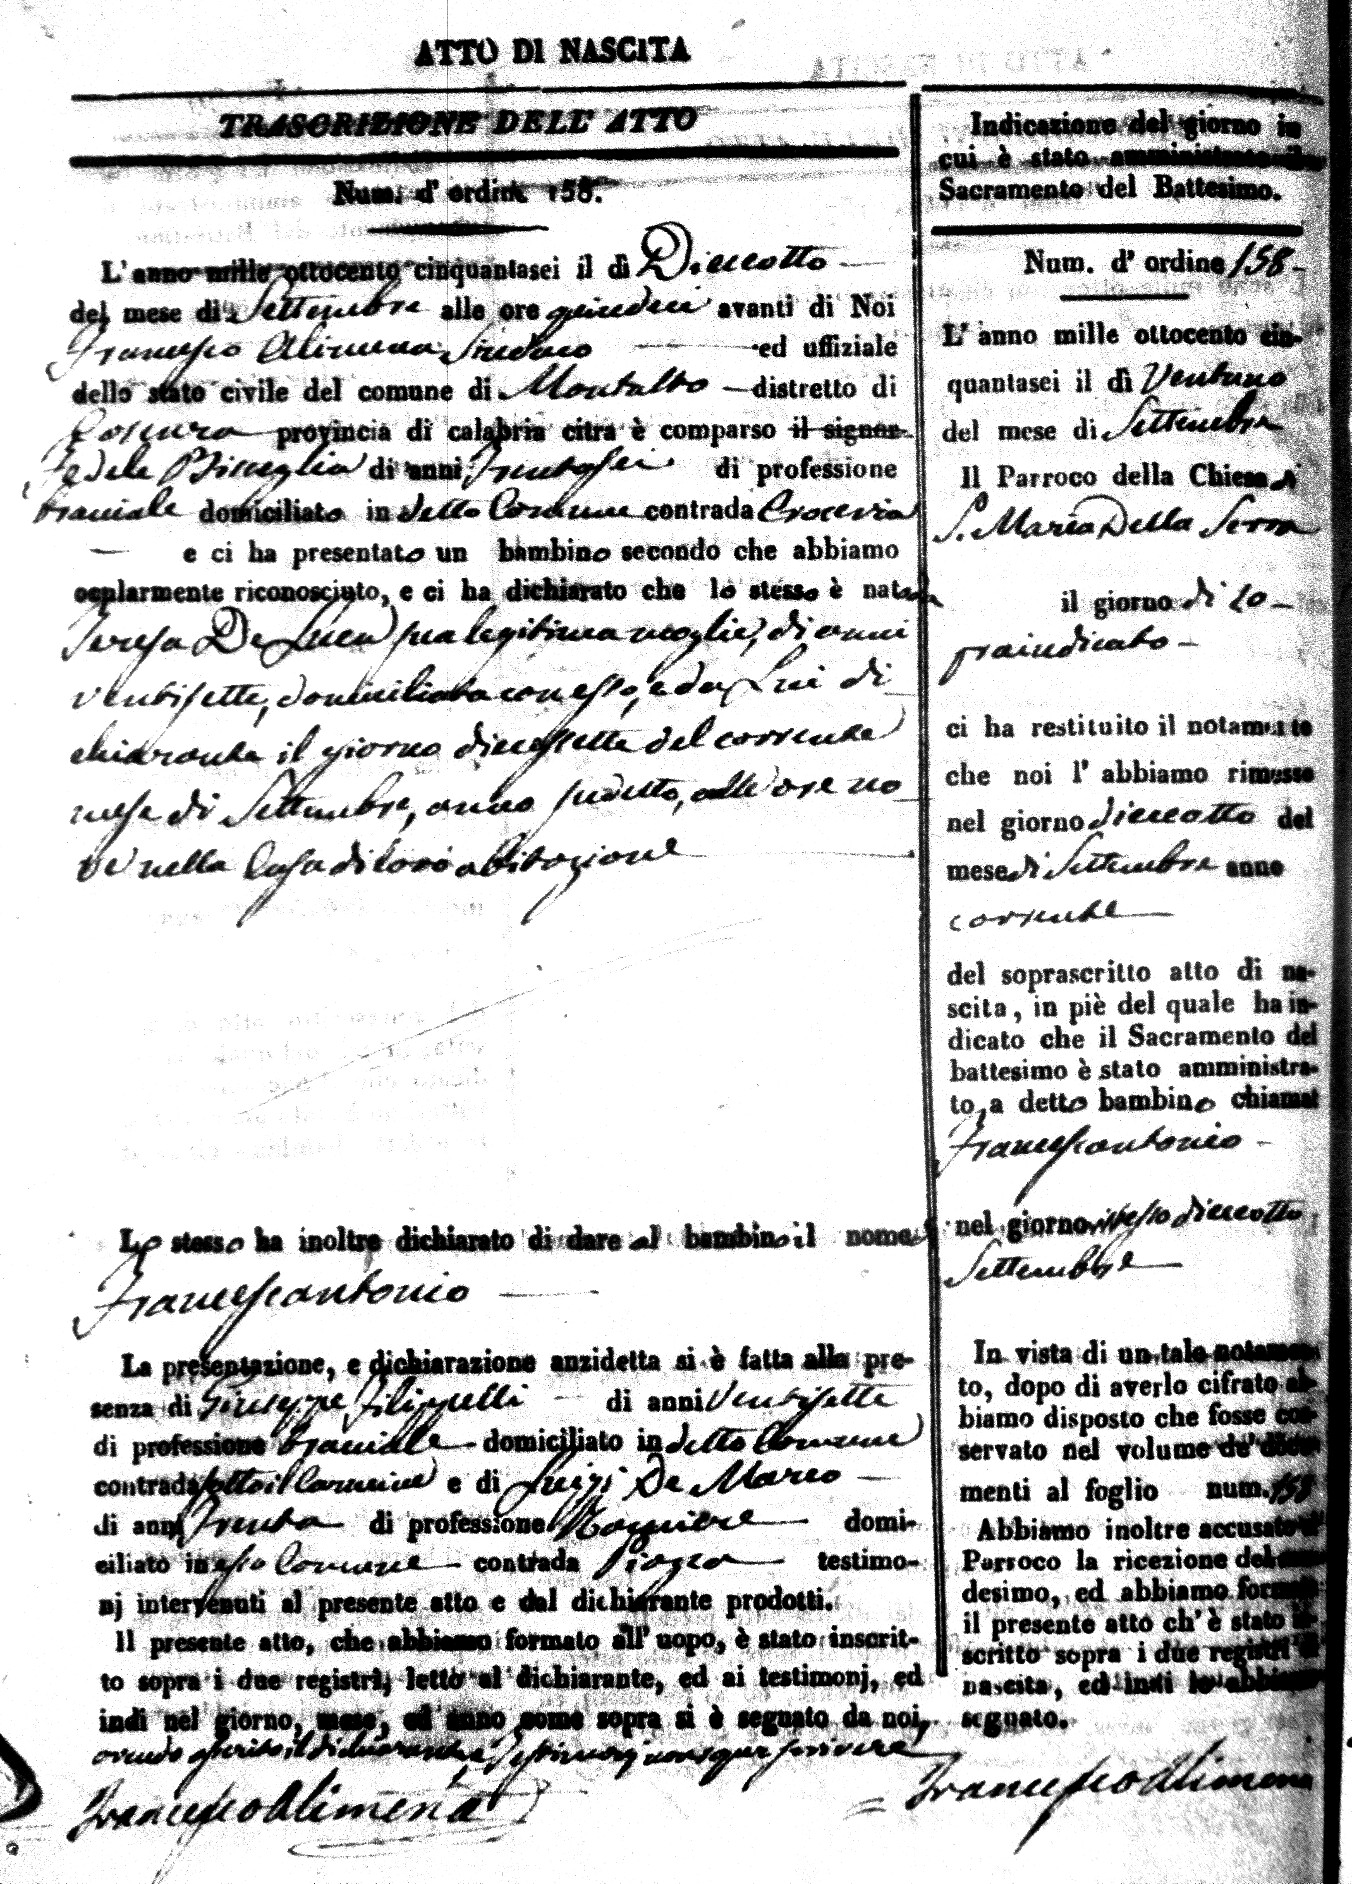 ATTO DI NASCITA
TRASCRIZIONE DELL' ATTO
Num. d' ordine 158.
L' anno mille ottocento cinquantasei il dì Dieceotto
del mese di Settembre alle ore quindici avanti di Noi
Francesco Alimena Sindaco ed uffiziale
dello stato civile del comune di Montalto distretto di
Cosenza provincia di calabria citra è comparso il signor
Fedele Bisceglia di anni Trentasei di professione
braciale domiciliato in detto Comune contrada Crocevia
e ci ha presentato un bambino secondo che abbiamo
ocularmente riconosciuto, e ci ha dichiarato che lo stesso è nato da
Teresa De Luca sua legitima moglie, di anni
ventisette, domiciliata con esso, e da Lui di
chiarante il giorno diecessette del corrente
mese di Settembre, anno sudetto, alle ore no
ve nella Casa di loro abitazione
Lo stesso ha inoltre dichiarato di dare al bambino il nome di
Francescantonio
La presentazione, e dichiarazione anzidetta si è fatta alla pre-
senza di Giuseppe Filippelli di anni Ventisette
di professione braciale domiciliato in detto Comune
contrada sotto il Carmine e di Luigi De Marco
di anni Trenta di professione domi-
ciliato in esso Comune contrada Piazza testimo-
nj intervenuti al presente atto e dal dichiarante prodotti.
Il presente atto, che abbiamo formato all' uopo, è stato inscrit-
to sopra i due registri, letto al dichiarante, ed ai testimonj, ed
indi nel giorno, mese, ed anno come sopra si è segnato da noi,
avendo asserito il dichiarante, e Testimonj non saper scrivere
Francesco Alimena
Indicazione del giorno in
cui è stato amministrato il
Sacramento del Battesimo.
Num. d' ordine 158
L' anno mille ottocento cin-
quantasei il dì Ventuno
del mese di Settembre
Il Parroco della Chiesa di
S. Maria Della Serra
il giorno di so
praindicato
ci ha restituito il notamento
che noi l' abbiamo rimesso
nel giorno dieceotto del
mese di Settembre anno
corrente
del soprascritto atto di na-
scita, in piè del quale ha in-
dicato che il Sacramento del
battesimo è stato amministra-
to, a detto bambino chiamat
Francescantonio
nel giorno istesso dieceotto
Settembre
In vista di un tale notamen-
to, dopo di averlo cifrato ab-
biamo disposto che fosse con-
servato nel volume de' docu-
menti al foglio num. 158
Abbiamo inoltre accusato al
Parroco la ricezione del me-
desimo, ed abbiamo formato
il presente atto ch' è stato in-
scritto sopra i due registri di
nascita, ed indi lo abbiamo
segnato.
Francesco Alimena